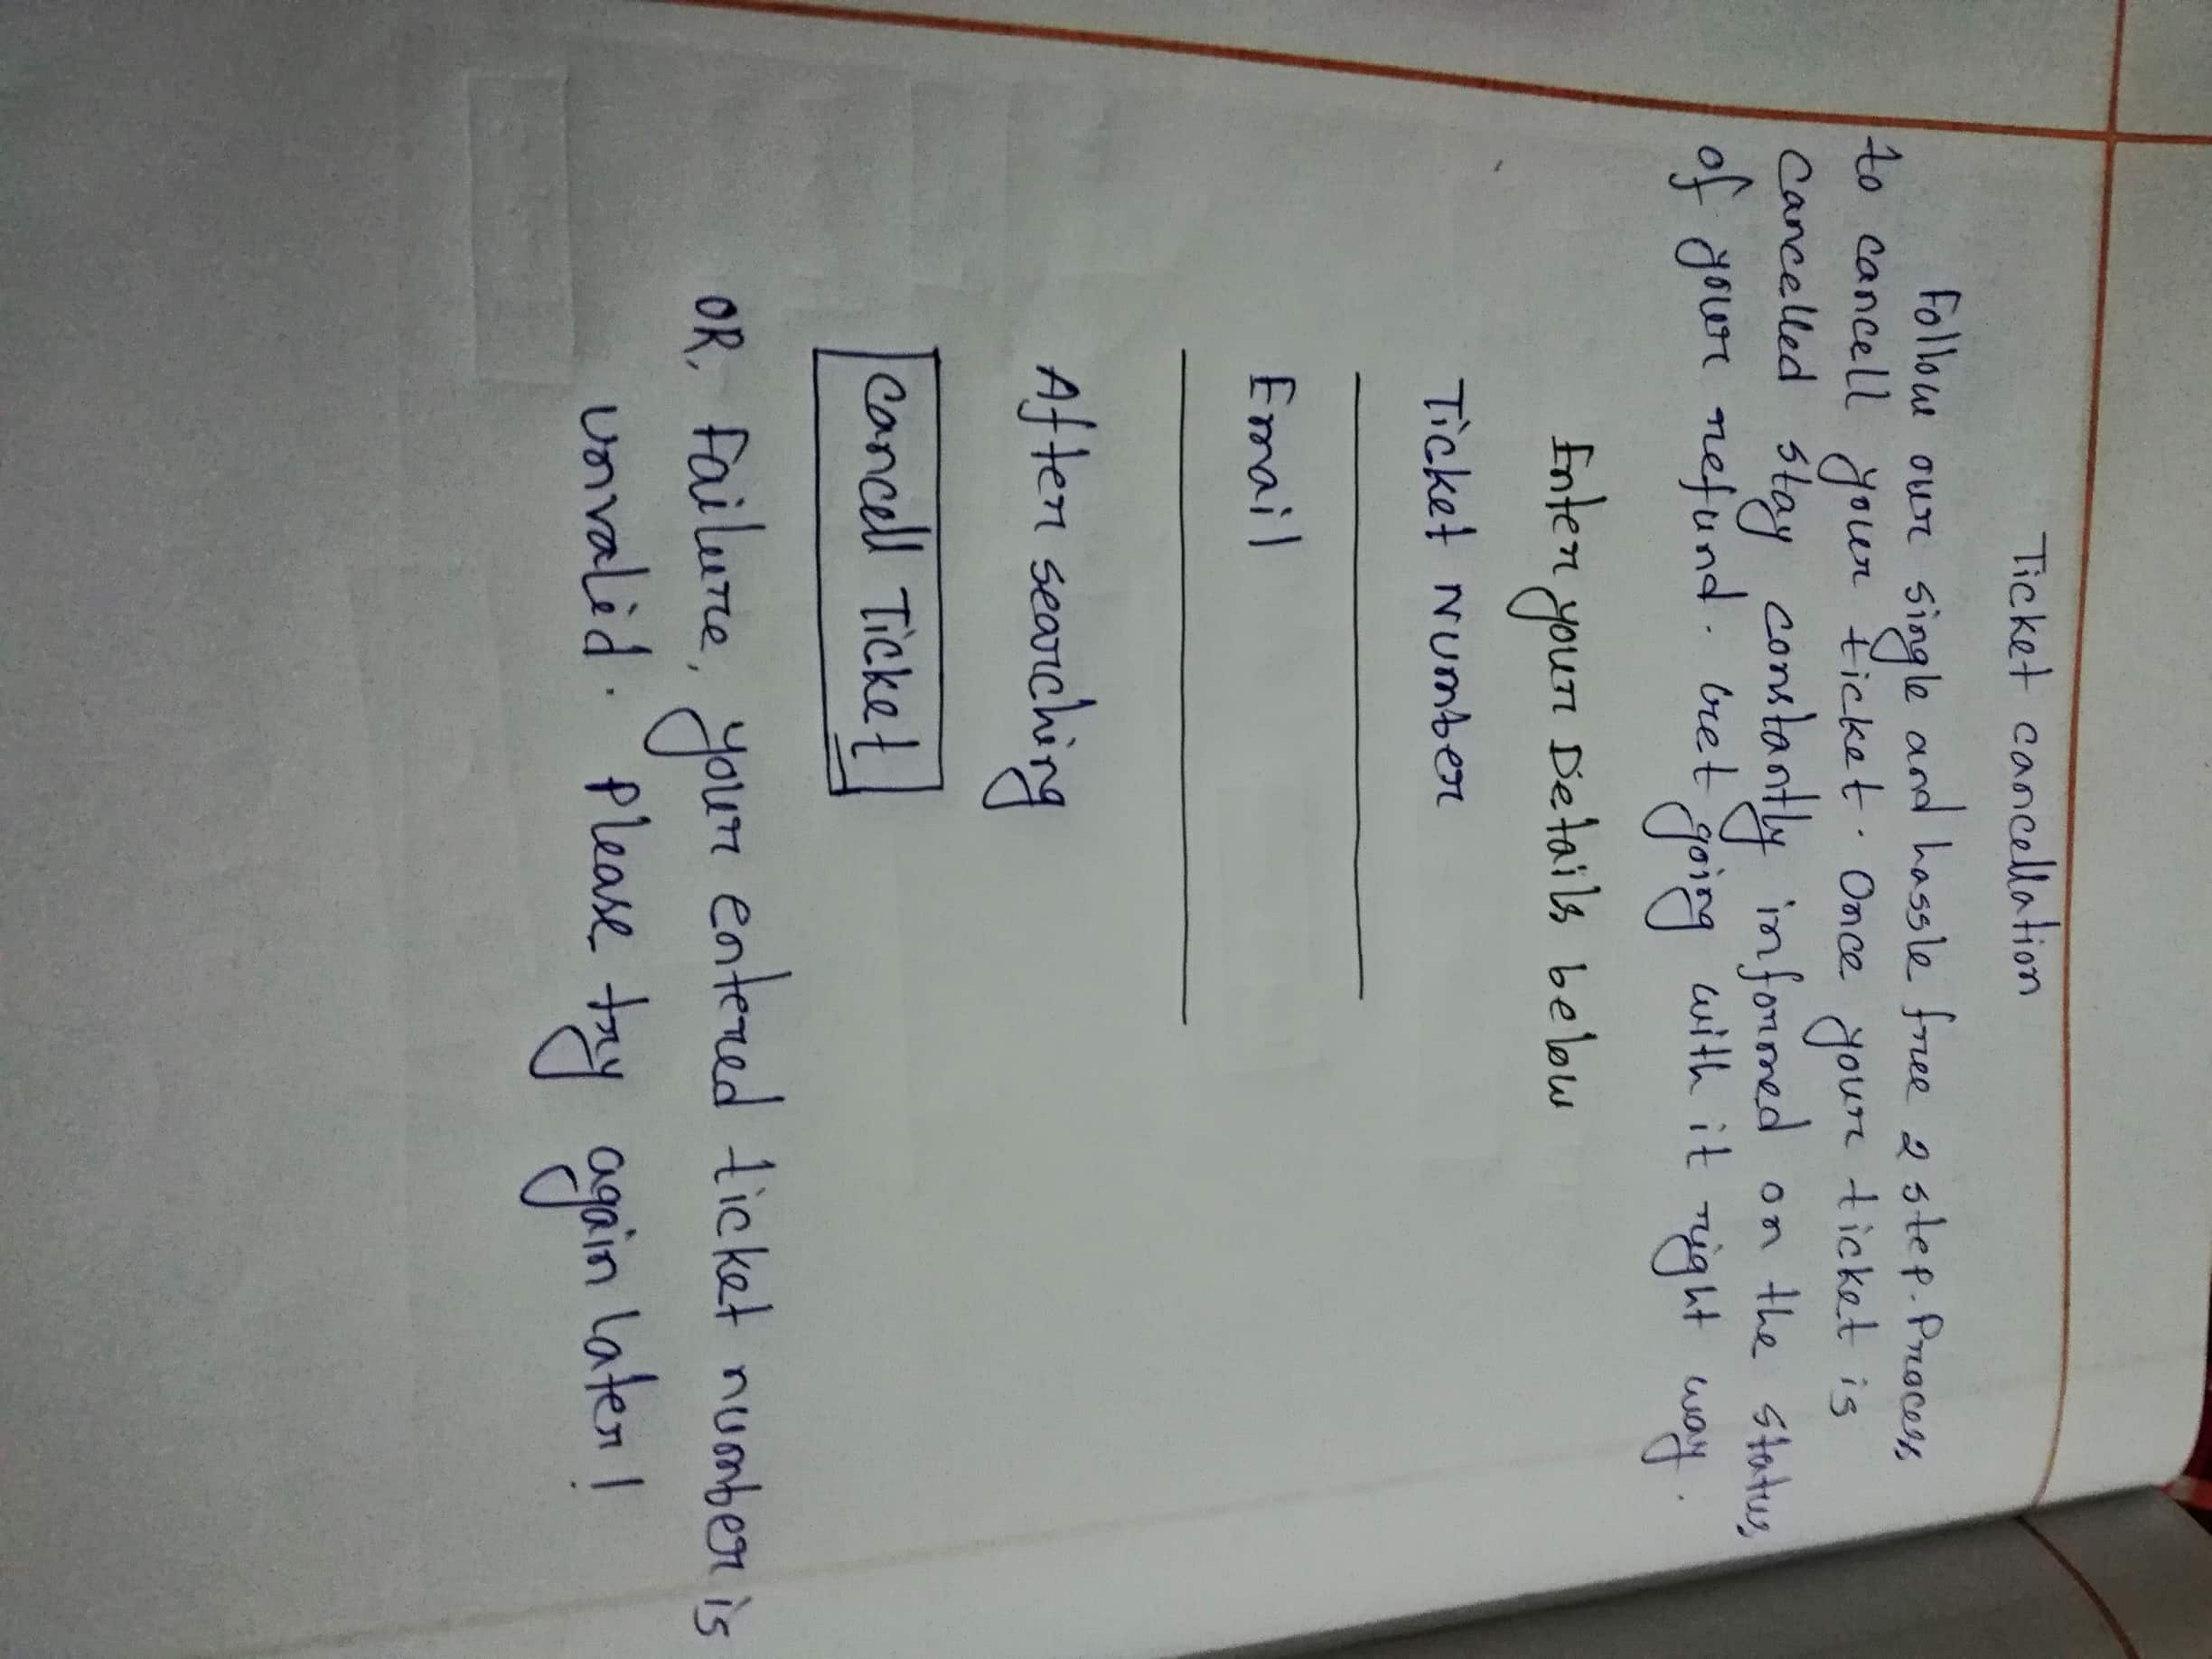 Ticket cancellation
Follow our single and hassle free 2 step. Process
to cancell your ticket. Once your ticket is
cancelled stay constantly informed on the status
of your refund. Get going with it right way.
Enter your Details below
Ticket Number
Email
After searching
Cancell Ticket
OR, Failure, your entered ticket number is
unvalid. Please try again later!